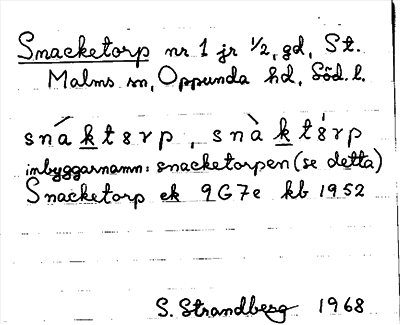 Snacketorp nr 1 jr 1/2, gd, St.
Malms sn, Oppunda hd, Söd. l.
snáktɜrp, snàktɜ́rp
inbyggarnamn: snacketorpen (se detta)
Snacketorp ek 9G7e kb 1952
S. Strandberg 1968